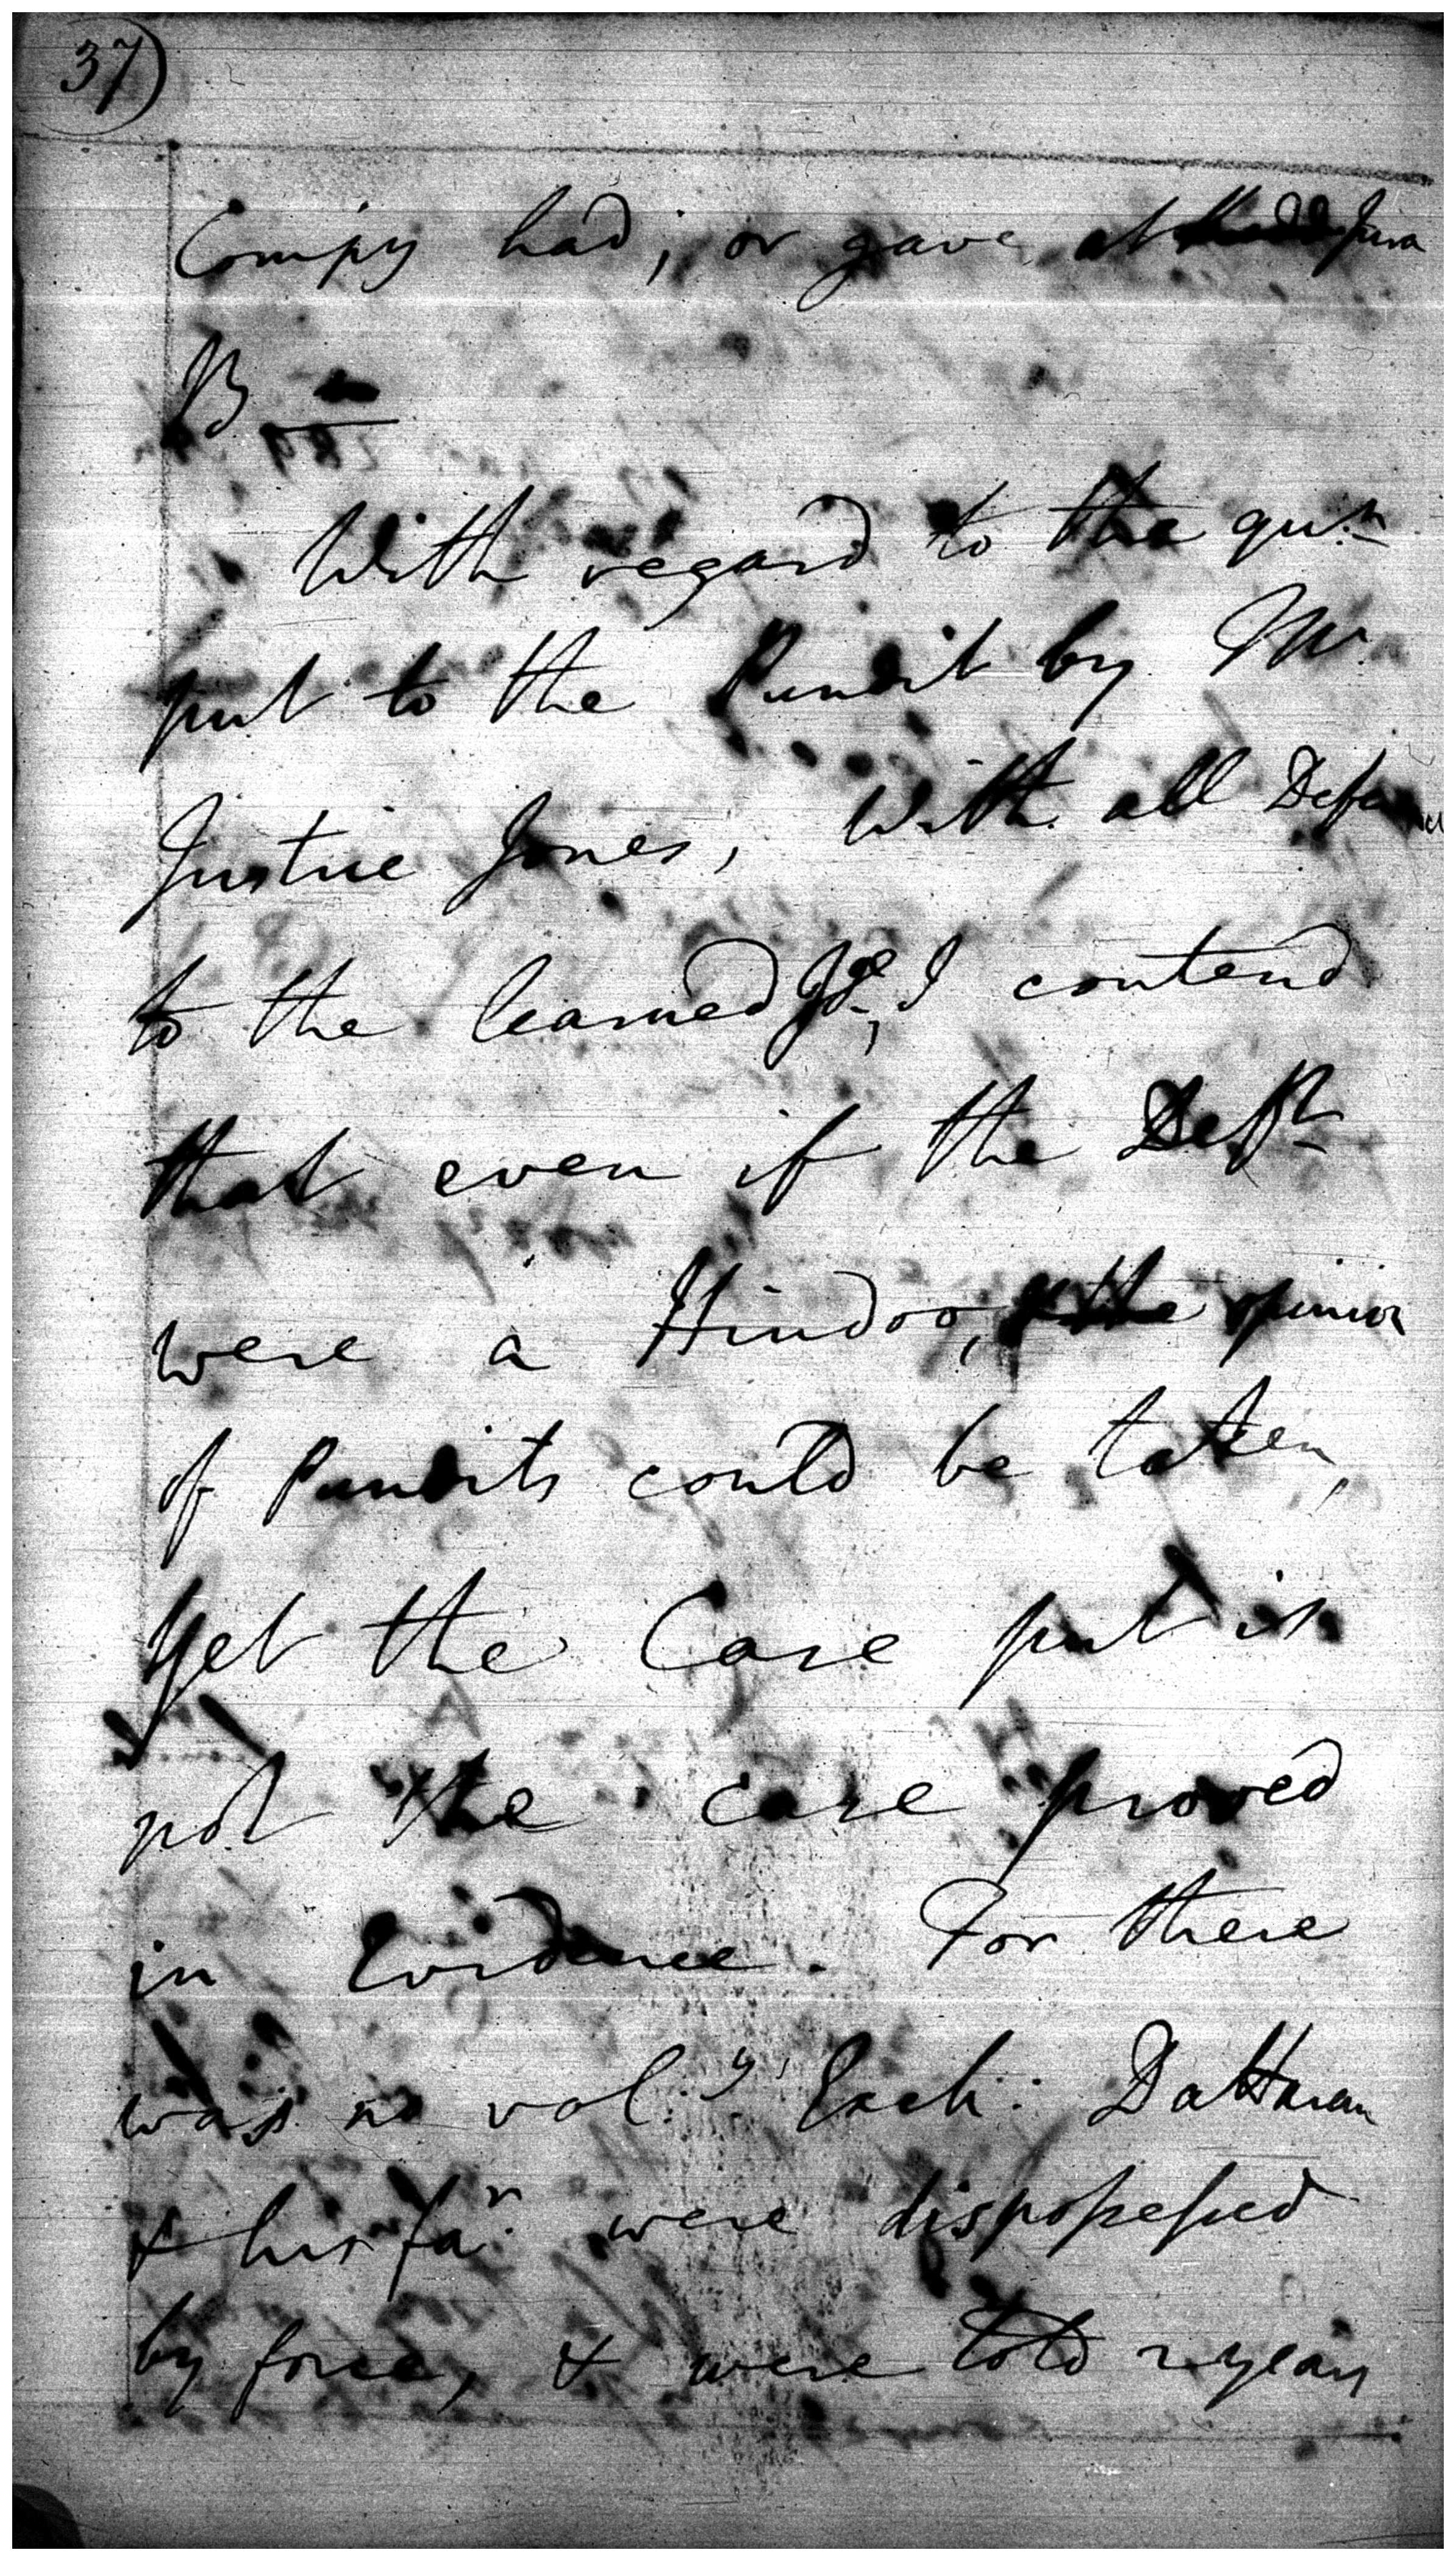 37)
Compy had; or gave at
B
With regard to the qusn
put to the Pundit by Mr.
Justice Jones, With all Defer
to the learned Jge, I contend
that even if the Deft
were a Hindoo, & the opinion
of Pundits could be taken,
Yet the Case put is
not the case proved
in Evidence. For there
was no vol:y Exch: Dattaram
& his far. were dispossessed
by force, & were told 2 years